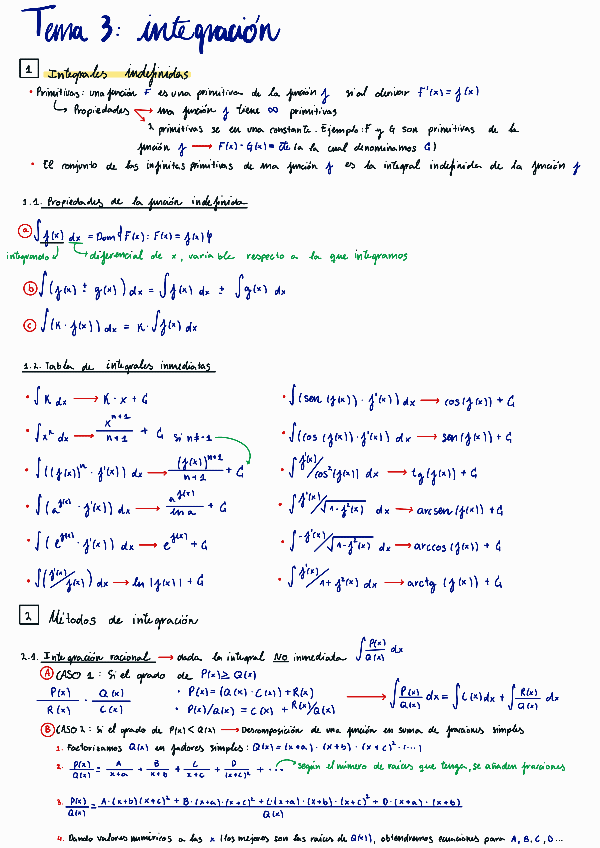 Tema 3: integración
1 Integrales indefinidas
• Primitivas: una función F es una primitiva de la función f si al derivar F'(x) = f(x)
↳ Propiedades → una función f tiene ∞ primitivas
→ 2 primitivas se en una constante. Ejemplo: F y G son primitivas de la
función f → F(x) - G(x) = cte (a la cual denominamos C)
• El conjunto de las infinitas primitivas de una función f es la integral indefinida de la función f
1.1. Propiedades de la función indefinida
a ∫ f(x) dx = Dom { F(x) : F(x) = f(x) }
integrando ↲ ↳ diferencial de x, variable respecto a la que integramos
b ∫ (f(x) ± g(x)) dx = ∫ f(x) dx ± ∫ g(x) dx
c ∫ (K · f(x)) dx = K · ∫ f(x) dx
1.2. Tabla de integrales inmediatas
• ∫ K dx → K · x + C
• ∫ xⁿ dx → xⁿ⁺¹/n+1 + C si n ≠ -1
• ∫ ((f(x))ⁿ · f'(x)) dx → (f(x))ⁿ⁺¹/n+1 + C
• ∫ (a^f(x) · f'(x)) dx → a^f(x)/ln a + C
• ∫ (e^f(x) · f'(x)) dx → e^f(x) + C
• ∫ (f'(x)/f(x)) dx → ln |f(x)| + C
• ∫ (sen (f(x)) · f'(x)) dx → cos (f(x)) + C
• ∫ (cos (f(x)) · f'(x)) dx → sen (f(x)) + C
• ∫ f'(x)/cos²(f(x)) dx → tg (f(x)) + C
• ∫ f'(x)/√1-f²(x) dx → arcsen (f(x)) + C
• ∫ -f'(x)/√1-f²(x) dx → arccos (f(x)) + C
• ∫ f'(x)/1+f²(x) dx → arctg (f(x)) + C
2 Métodos de integración
2.1. Integración racional → dada la integral NO inmediata ∫ P(x)/Q(x) dx
A CASO 1: Si el grado de P(x) ≥ Q(x)
P(x)/R(x) · Q(x)/C(x)
• P(x) = (Q(x) · C(x)) + R(x)
• P(x)/Q(x) = C(x) + R(x)/Q(x)
→ ∫ P(x)/Q(x) dx = ∫ C(x) dx + ∫ R(x)/Q(x) dx
B CASO 2: Si el grado de P(x) < Q(x) → Descomposición de una función en suma de fraciones simples
1. Factorizamos Q(x) en fadores simples: Q(x) = (x+a) · (x+b) · (x+c)² · (...)
2. P(x)/Q(x) = A/x+a + B/x+b + C/x+c + D/(x+c)² + ... → según el número de raíces que tenga, se añaden fraciones
3. P(x)/Q(x) = A·(x+b)(x+c)² + B·(x+a)·(x+c)² + C·(x+a)·(x+b)·(x+c)² + D·(x+a)·(x+b)/Q(x)
4. Dando valores numéricos a las x (los mejores son las raíces de Q(x)), obtendremos ecuaciones para A, B, C, D ...